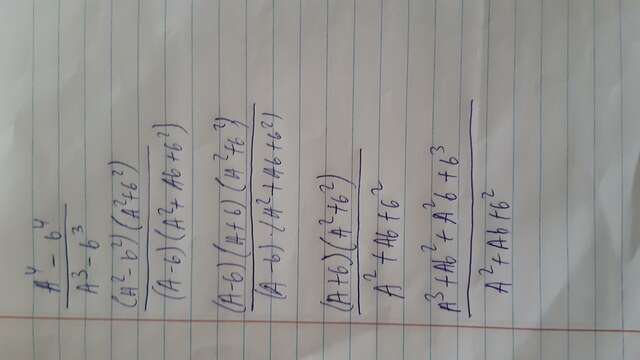 A⁴ - b⁴
A³ - b³
(A² - b²)(A² + b²)
(A - b)(A² + Ab + b²)
(A - b)(A + b)(A² + b²)
(A - b)·(A² + Ab + b²)
(A + b)(A² + b²)
A² + Ab + b²
A³ + Ab² + A²b + b³
A² + Ab + b²